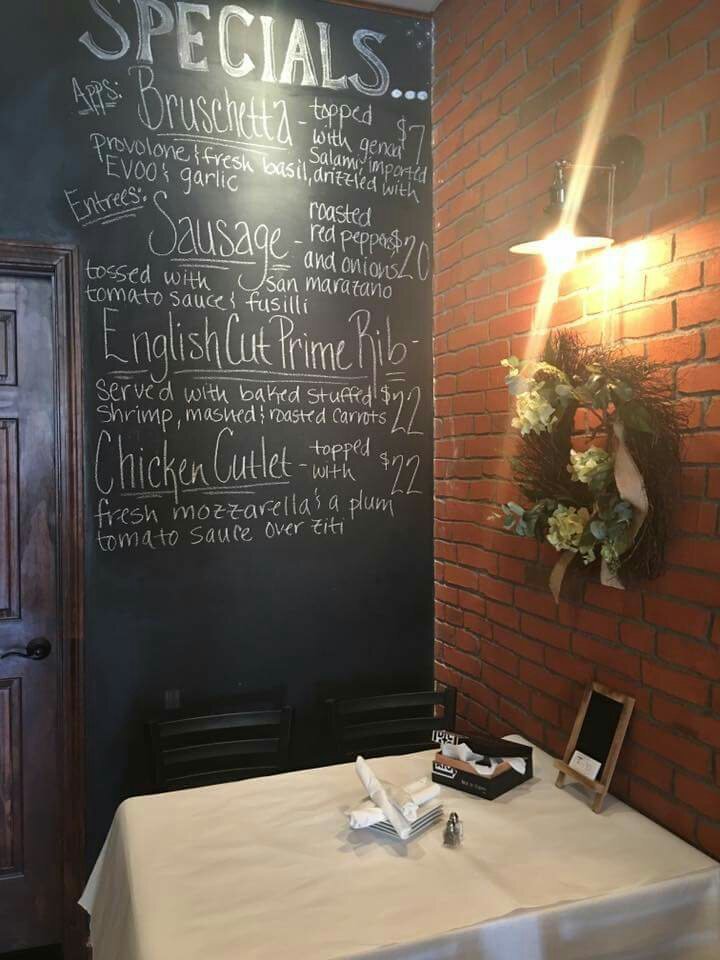 SPECIALS...
Apps: Bruschetta - topped $7
with genoa
provolone & fresh basil, Salami, imported
EVOO & garlic drizzled with
Entrees:
Sausage - roasted
red peppers $20
and onions
tossed with san marazano
tomato sauce & fusilli
English Cut Prime Rib -
served with baked stuffed $22
shrimp, mashed & roasted carrots
Chicken Cutlet - topped $22
with
fresh mozzarella & a plum
tomato sauce over ziti